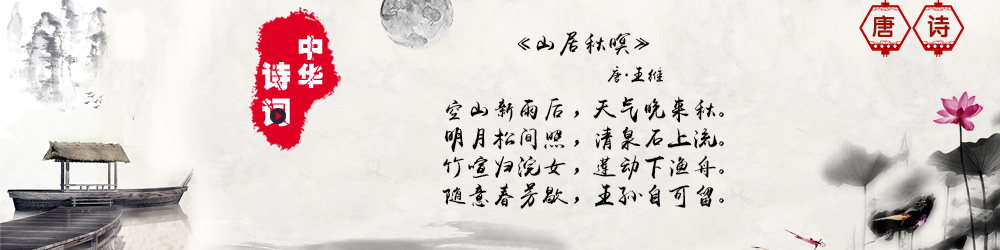 中华
诗词
《山居秋暝》
唐·王维
空山新雨后，天气晚来秋。
明月松间照，清泉石上流。
竹喧归浣女，莲动下渔舟。
随意春芳歇，王孙自可留。
唐诗